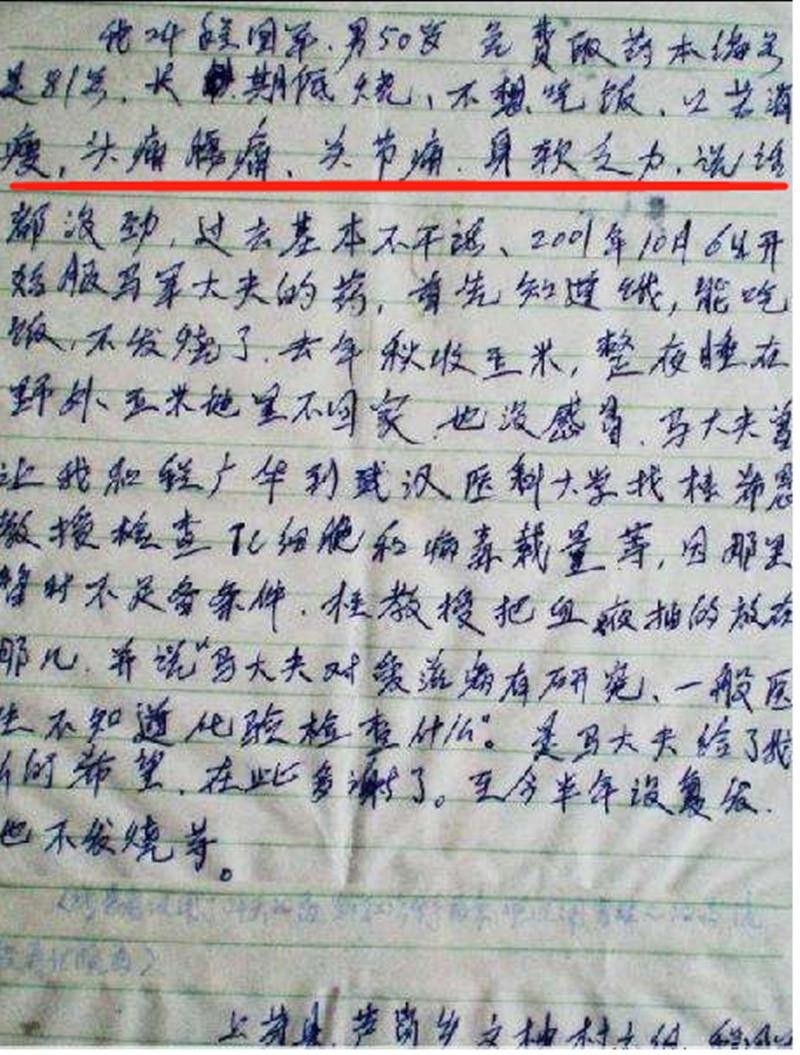 我叫程国军，男50岁 免费取药本编号
是81号，长期低烧、不想吃饭、以苦消
瘦，头痛腰痛、关节痛、身软乏力、说话
都没劲，过去基本不干活、2001年10月6日开
始服马军大夫的药，首先知道饿，能吃
饭，不发烧了，去年秋收玉米，整夜睡在
野外玉米地里不回家，也没感冒，马大夫曾
让我和程广华到武汉医科大学找桂希恩
教授检查TC细胞和病毒载量等，因那里
暂时不足备条件，桂教授把血液抽的放在
那儿，并说"马大夫对爱滋病有研究、一般医
生不知道化验检查什么"。是马大夫给了我
们的希望，在此多谢了。至今半年没复发，
也不发烧等。
上蔡县芦岗乡文楼村